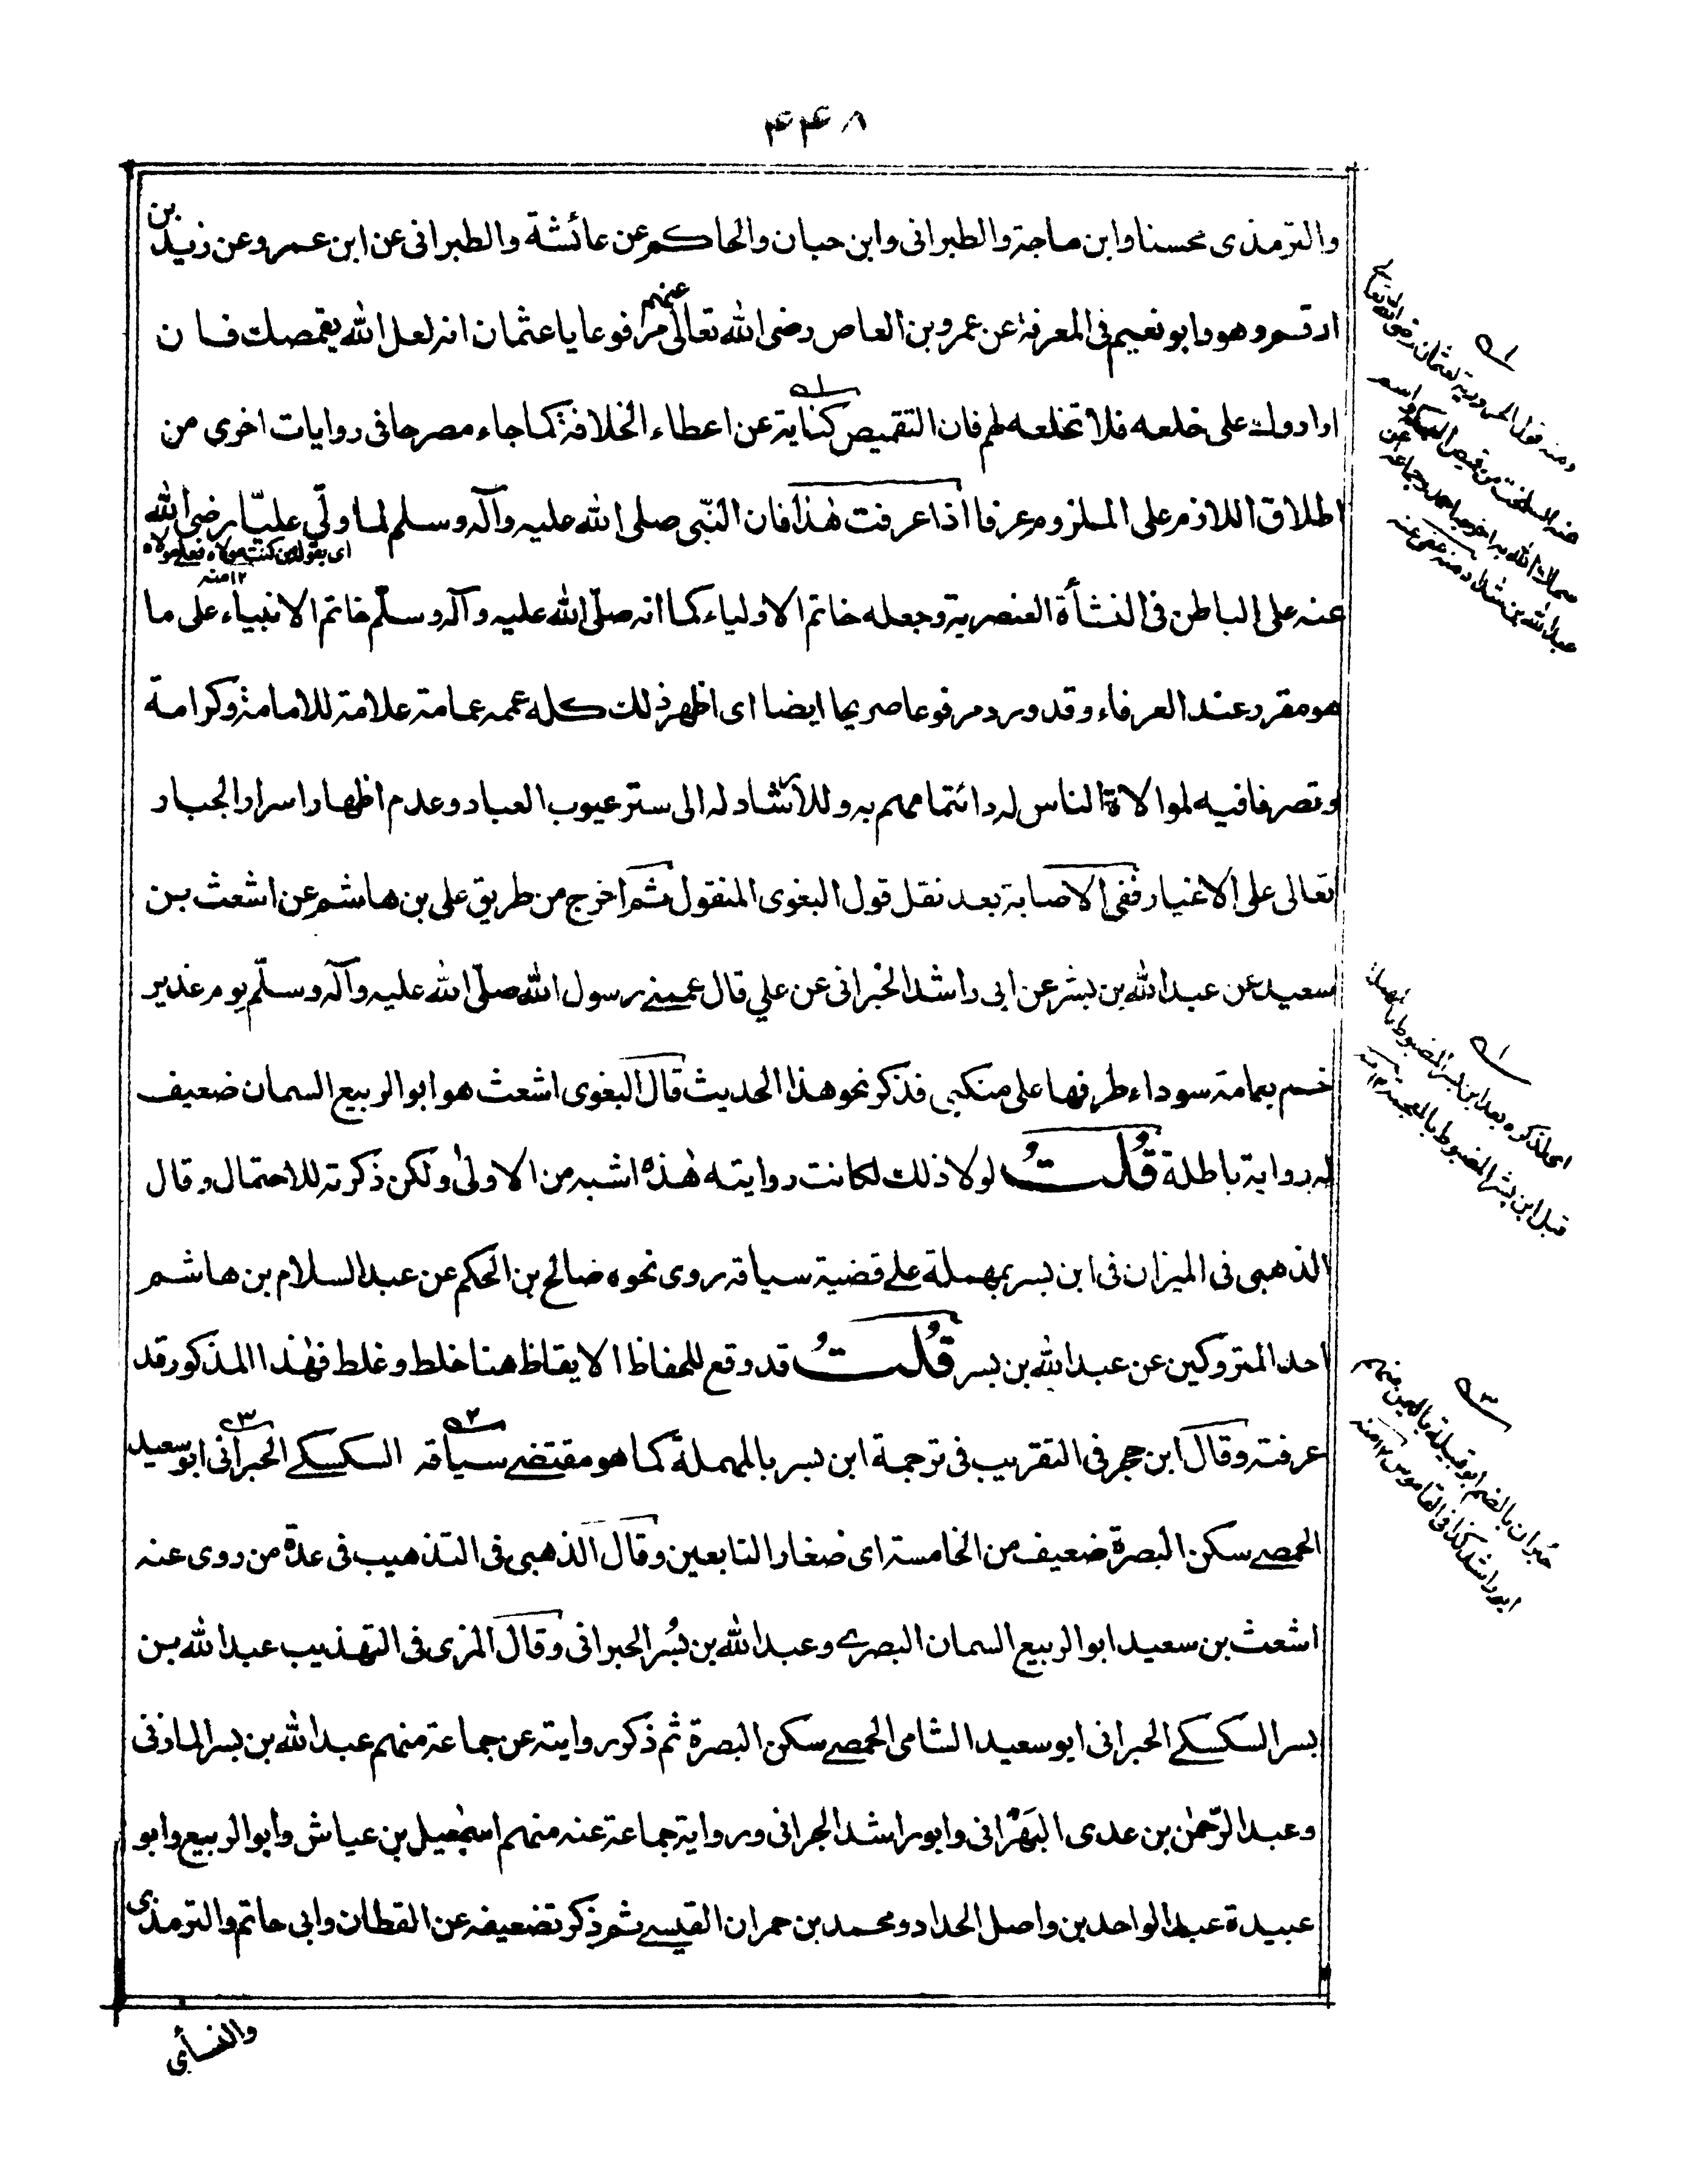 ۴۴۸
والترمذی محسنا وابن ماجة والطبرانی وابن حبان والحاکم عن عائشة والطبرانی عن ابن عمرو عن زید بن
ارقم وهو وابو نعیم فی المعرفة عن عمرو بن العاص رضی الله تعالی عنهم مرفوعا یا عثمان انه لعل الله یقمصك فان
ارادوك علی خلعه فلا تخلعه لهم فان التقمیص کنایة عن اعطاء الخلافة کما جاء مصرحا فی روایات اخری من
اطلاق اللازم علی الملزوم عرفا اذا عرفت هٰذا فان النّبی صلی الله علیه وآله وسلم لما ولّی علیّا رضی الله
ای بقوله من کنت مولاه فعلی مولاه
۱۲ منه
عنه علی الباطن فی النشأة العنصریة وجعله خاتم الاولیاء کما انه صلّی الله علیه وآله وسلّم خاتم الانبیاء علی ما
هو مقرر عند العرفاء وقد ورد مرفوعا صریحا ایضا ای اظهر ذلك کله عممه عمامة علامة للامامة وکرامة
وتصرفا فیه لموالاة الناس له وائتمامهم به وللارشاد له الی ستر عیوب العباد وعدم اظهار اسرار الجبار
تعالی علی الاغیار ففی الاصابة بعد نقل قول البغوی المنقول ثم اخرج من طریق علی بن هاشم عن اشعث بن
سعید عن عبد الله بن بشر عن ابی راشد الحُبرانی عن علي قال عممنی رسول الله صلّی الله علیه وآله وسلّم یوم غدیر
خم بعمامة سوداء طرفها علی منکبی فذکر نحو هذا الحدیث قال البغوی اشعث هو ابو الربیع السمان ضعیف
له روایة باطلة قُلتُ لولا ذلك لکانت روایته هٰذه اشبه من الاولیٰ ولکن ذکرته للاحتمال وقال
الذهبی فی المیزان فی ابن بسر بمهملة علے قضیة سیاقه روی نحوه صالح بن الحکم عن عبد السلام بن هاشم
احد المتروکین عن عبد الله بن بسر قُلتُ قد وقع للحفاظ الایقاظ هنا خلط وغلط فهٰذا المذکور قد
عرفته وقال ابن حجر فی التقریب فی ترجمة ابن بسر بالمهملة کما هو مقتضے سیاقه السکسکے الحبرانی ابو سعید
الحمصے سکن البصرة ضعیف من الخامسة ای صغار التابعین وقال الذهبی فی التذهیب فی عدة من روی عنه
اشعث بن سعید ابو الربیع السمان البصرے وعبد الله بن بُسر الحبرانی وقال المزی فی التهذیب عبد الله بن
بسر السکسکے الحبرانی ابو سعید الشامی الحمصے سکن البصرة ثم ذکر روایته عن جماعة منهم عبد الله بن بسر المازنی
وعبد الرّحمٰن بن عدی البَهْرانی وابو راشد الحبرانی وروایة جماعة عنه منهم اسمٰعیل بن عیاش وابو الربیع وابو
عبیدة عبد الواحد بن واصل الحداد ومحمد بن حمران القیسے ثم ذکر تضعیفه عن القطان وابی حاتم والترمذی
والنسأی
ومنه قول الحروریة لعثمان رضی الله تعالے
عنه انسلخت من قمیص البسکه واسم
سماك الله به اخرجه احمد وجماعة عن
عبد الله بن شداد منه عفی عنه
ای لذکره بعد ابن بسر المضبوط بالمهملة
قبل ابن بشر المضبوط بالمعجمة ۱۲ منه
حُبران بالضم ابو قبیلة بالیمن منهم
ابو راشد کذا فی القاموس ۱۲ منه